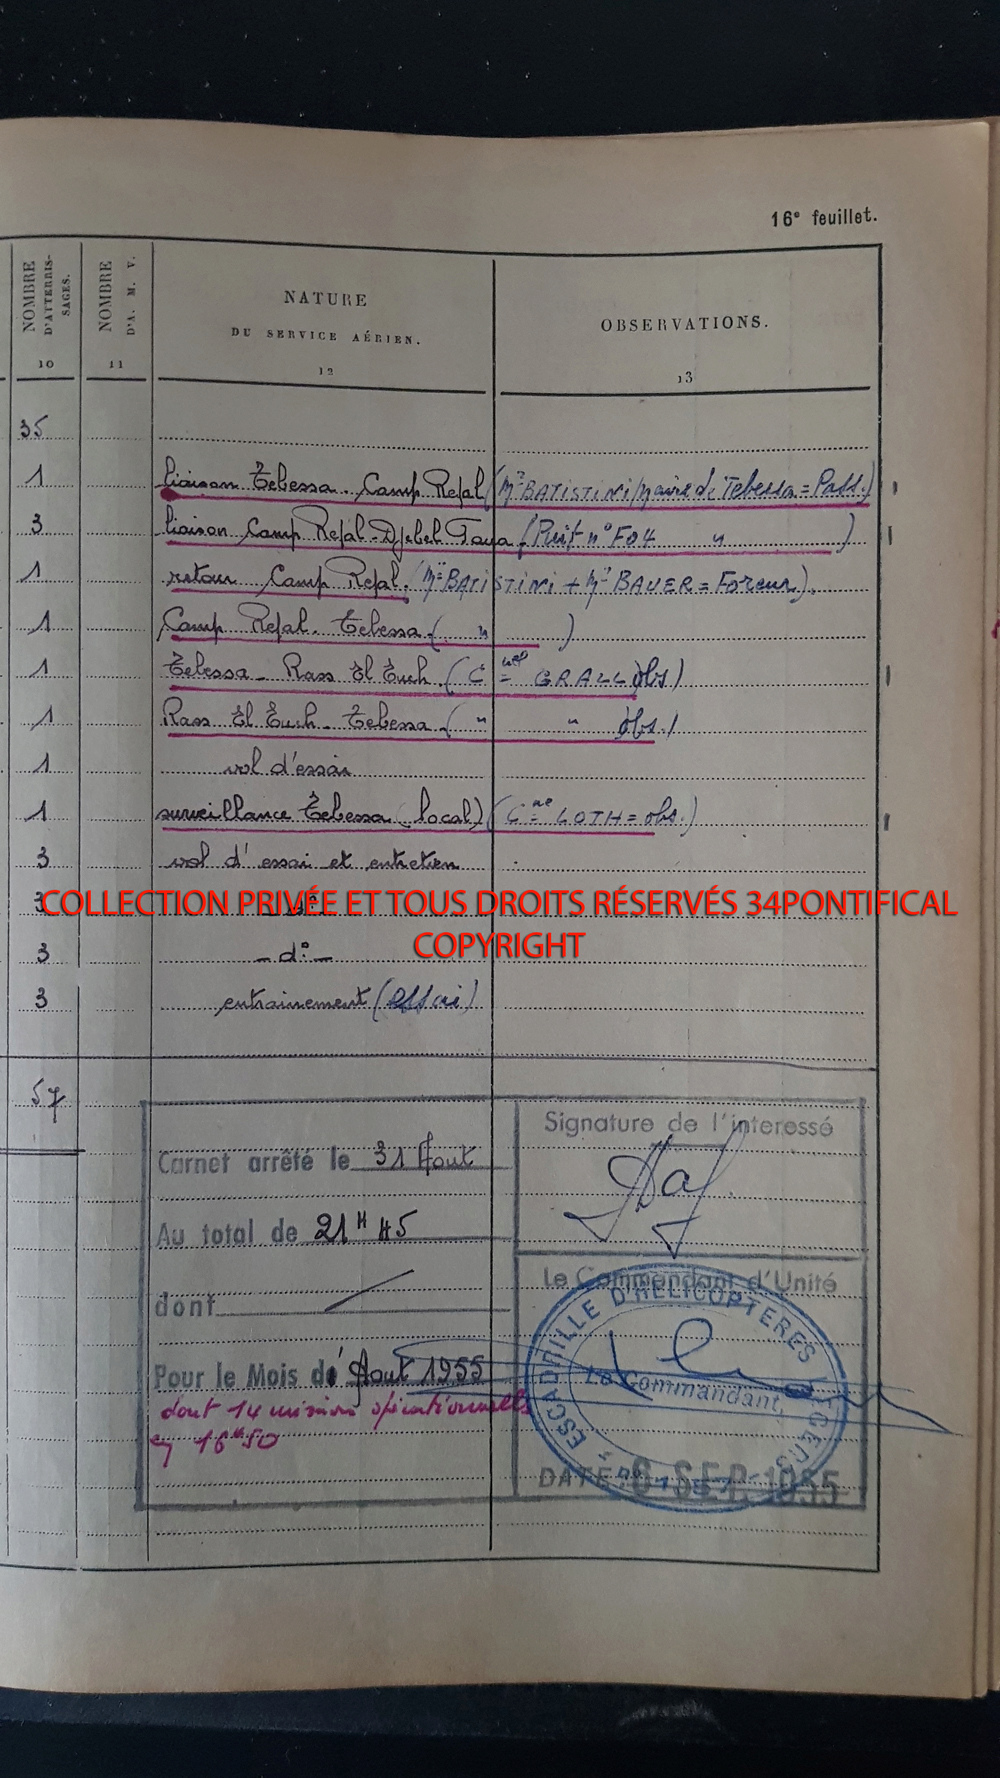 16e feuillet.
NOMBRE D'ATTERRIS-SAGES. 10
NOMBRE D'A. M. V. 11
NATURE
DU SERVICE AÉRIEN.
12
OBSERVATIONS.
13
35
1 liaison Tebessa. Camp Repal (Mr BATISTINI maire de Tebessa = Pass.)
3 liaison Camp Repal-Djebel Taya (Puit n° F04 " )
1 retour Camp Repal. (Mr BATISTINI + Mr BAUER = Foreur).
1 Camp Repal. Tebessa ( " )
1 Tebessa - Rass El Euch (Cne GRALL obs)
1 Rass El Euch - Tebessa ( " " obs.)
1 vol d'essai
1 surveillance Tebessa (local) (Cne LOTH = obs.)
3 vol d'essai et entretien
3 - d° -
COLLECTION PRIVÉE ET TOUS DROITS RÉSERVÉS 34PONTIFICAL
COPYRIGHT
3 - d° -
3 entrainement (essai)
57
Signature de l'interessé
Carnet arrêté le 31 Aout
Au total de 21H 45
Le Commandant d'Unité
dont
Pour le Mois de Aout 1955
dont 14 missions opérationnelles
en 16H50
ESCADRILLE D'HELICOPTERES LEGERS
Le Commandant,
DATE : 6 SEP. 1955